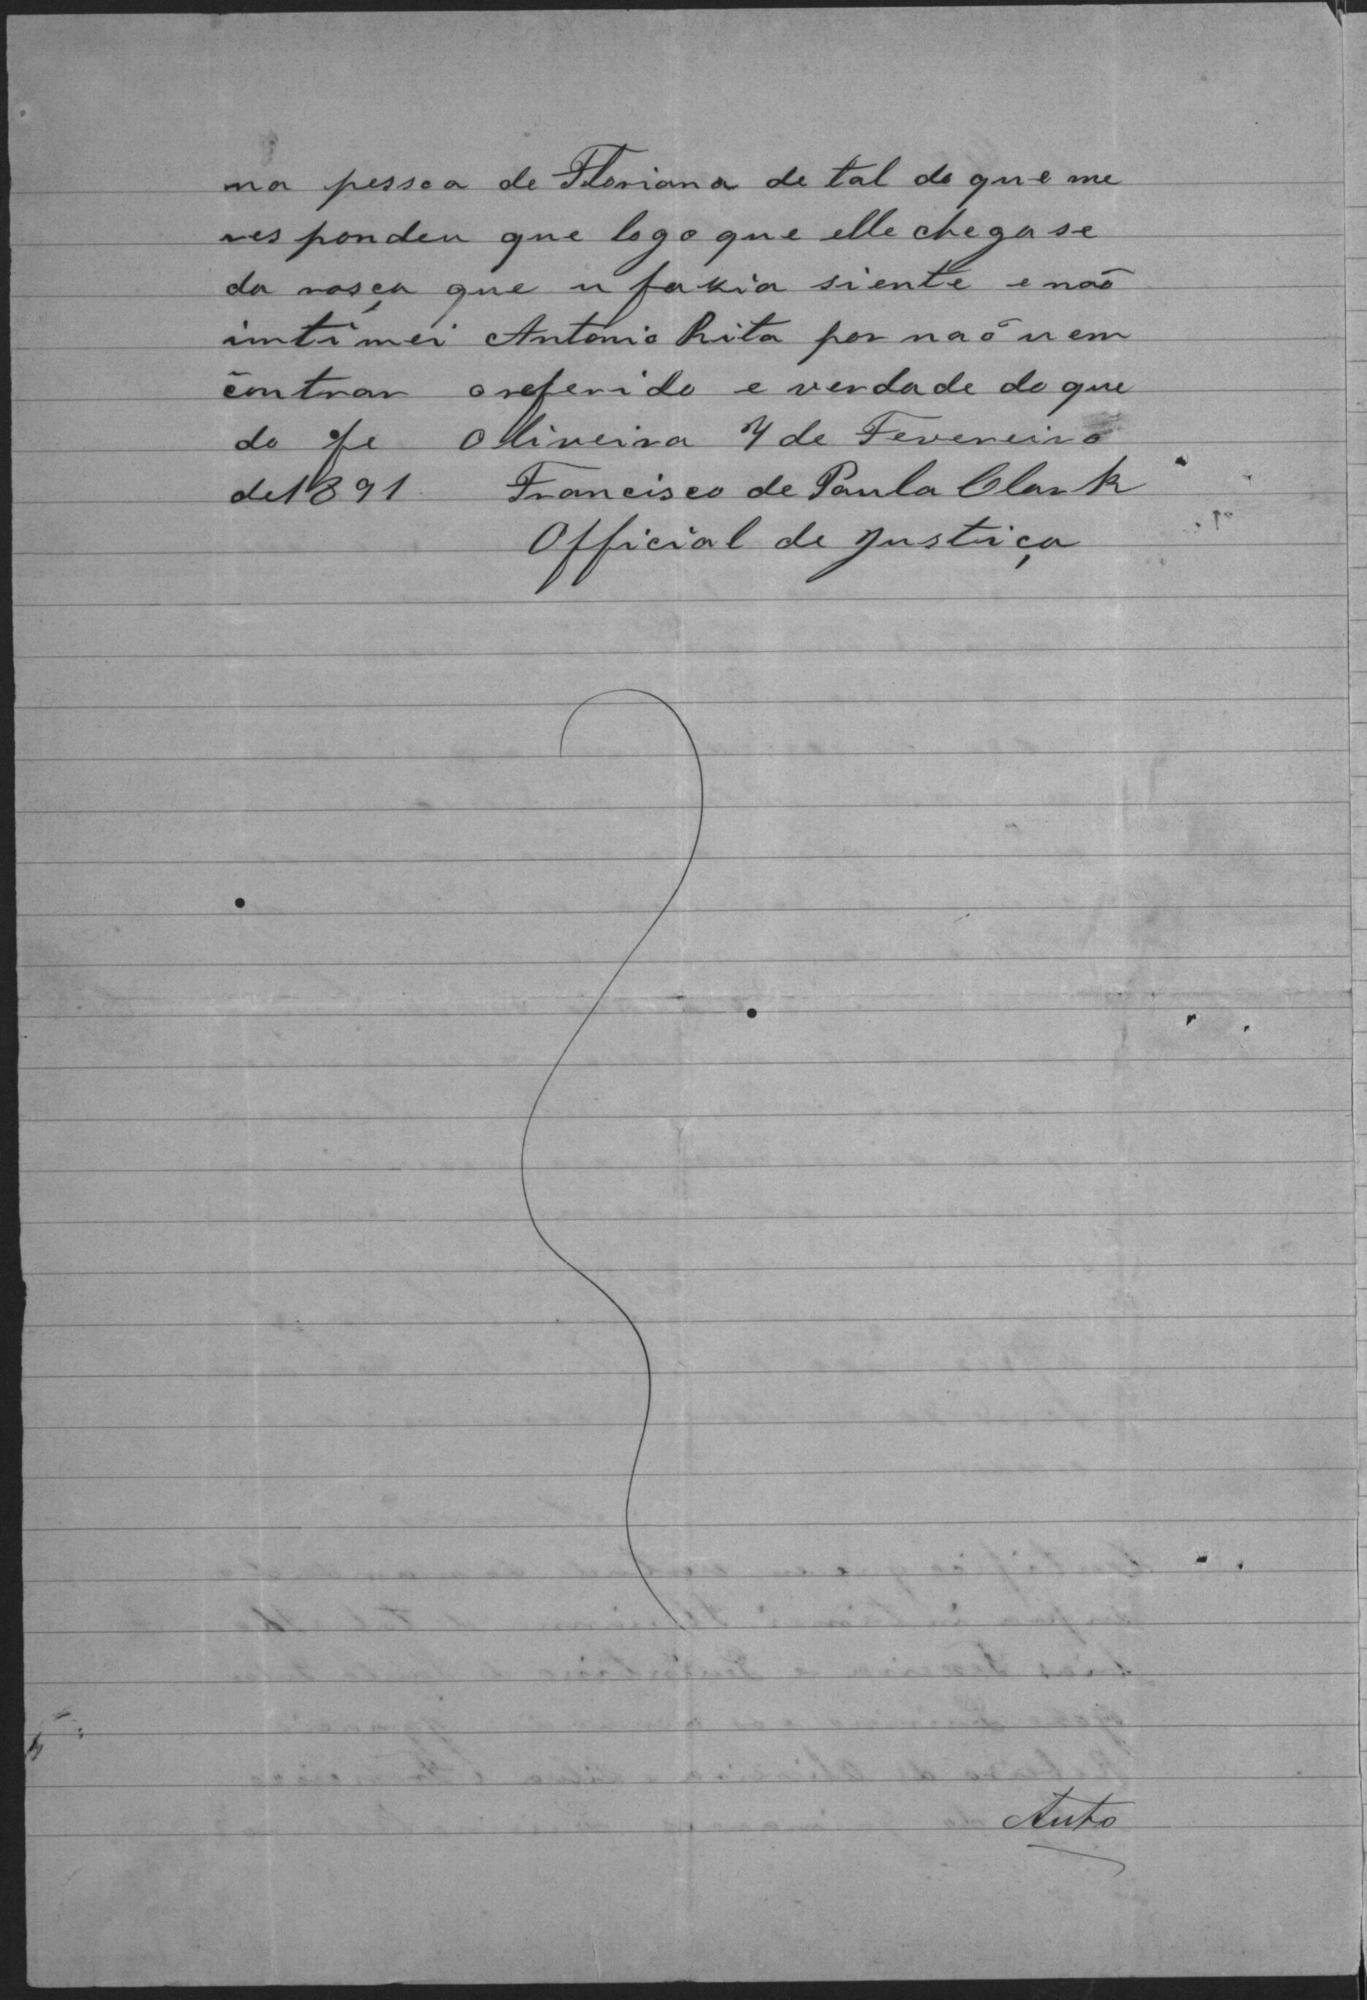 na pessoa de Floriana de tal do que me
respondeu que logo que elle chegase
da rosça que u faria siente e não
intimei Antonio Rita por não u em
contrar o referido e verdade do que
do fe Oliveira 7 de Fevereiro
de 1891 Francisco de Paula Clark
Official de Justiça
Auto